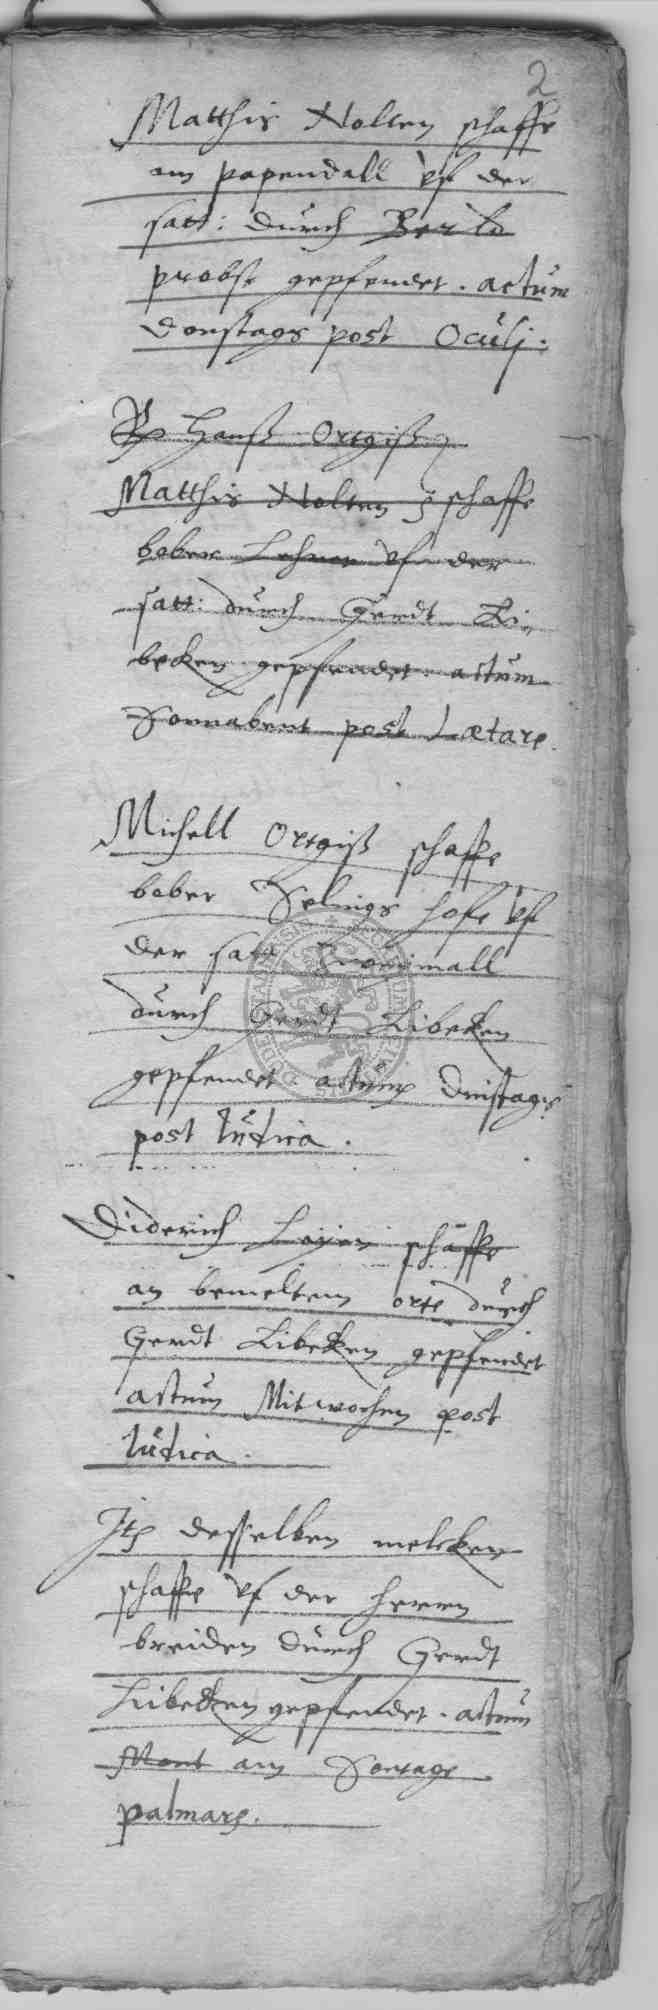 2
Matthis Nolten schaffe
am papendall vf der
satt: durch Berld
probst gepfendet. actum
Donstags post Oculj.
Hanß Ortgiß
Matthis Nolten schaffe
bober Lehnen vf der
satt: durch Gerdt Li-
becken gepfendet. actum
Sonnabent post Lætare.
Michell Ortgiß schaffe
bober Selings hofe vf
der satt zweymall
durch Gerdt Libecken
gepfendet. actum Dinstags
post Iudica.
Diderich schaffe
an bemeltem orte durch
Gerdt Libecken gepfendet
actum Mitwochen post
Iudica.
Itz desselben melcken
schaffe vf der herrn
breiden durch Gerdt
Libecken gepfendet. actum
Mont am Sontage
palmarum.